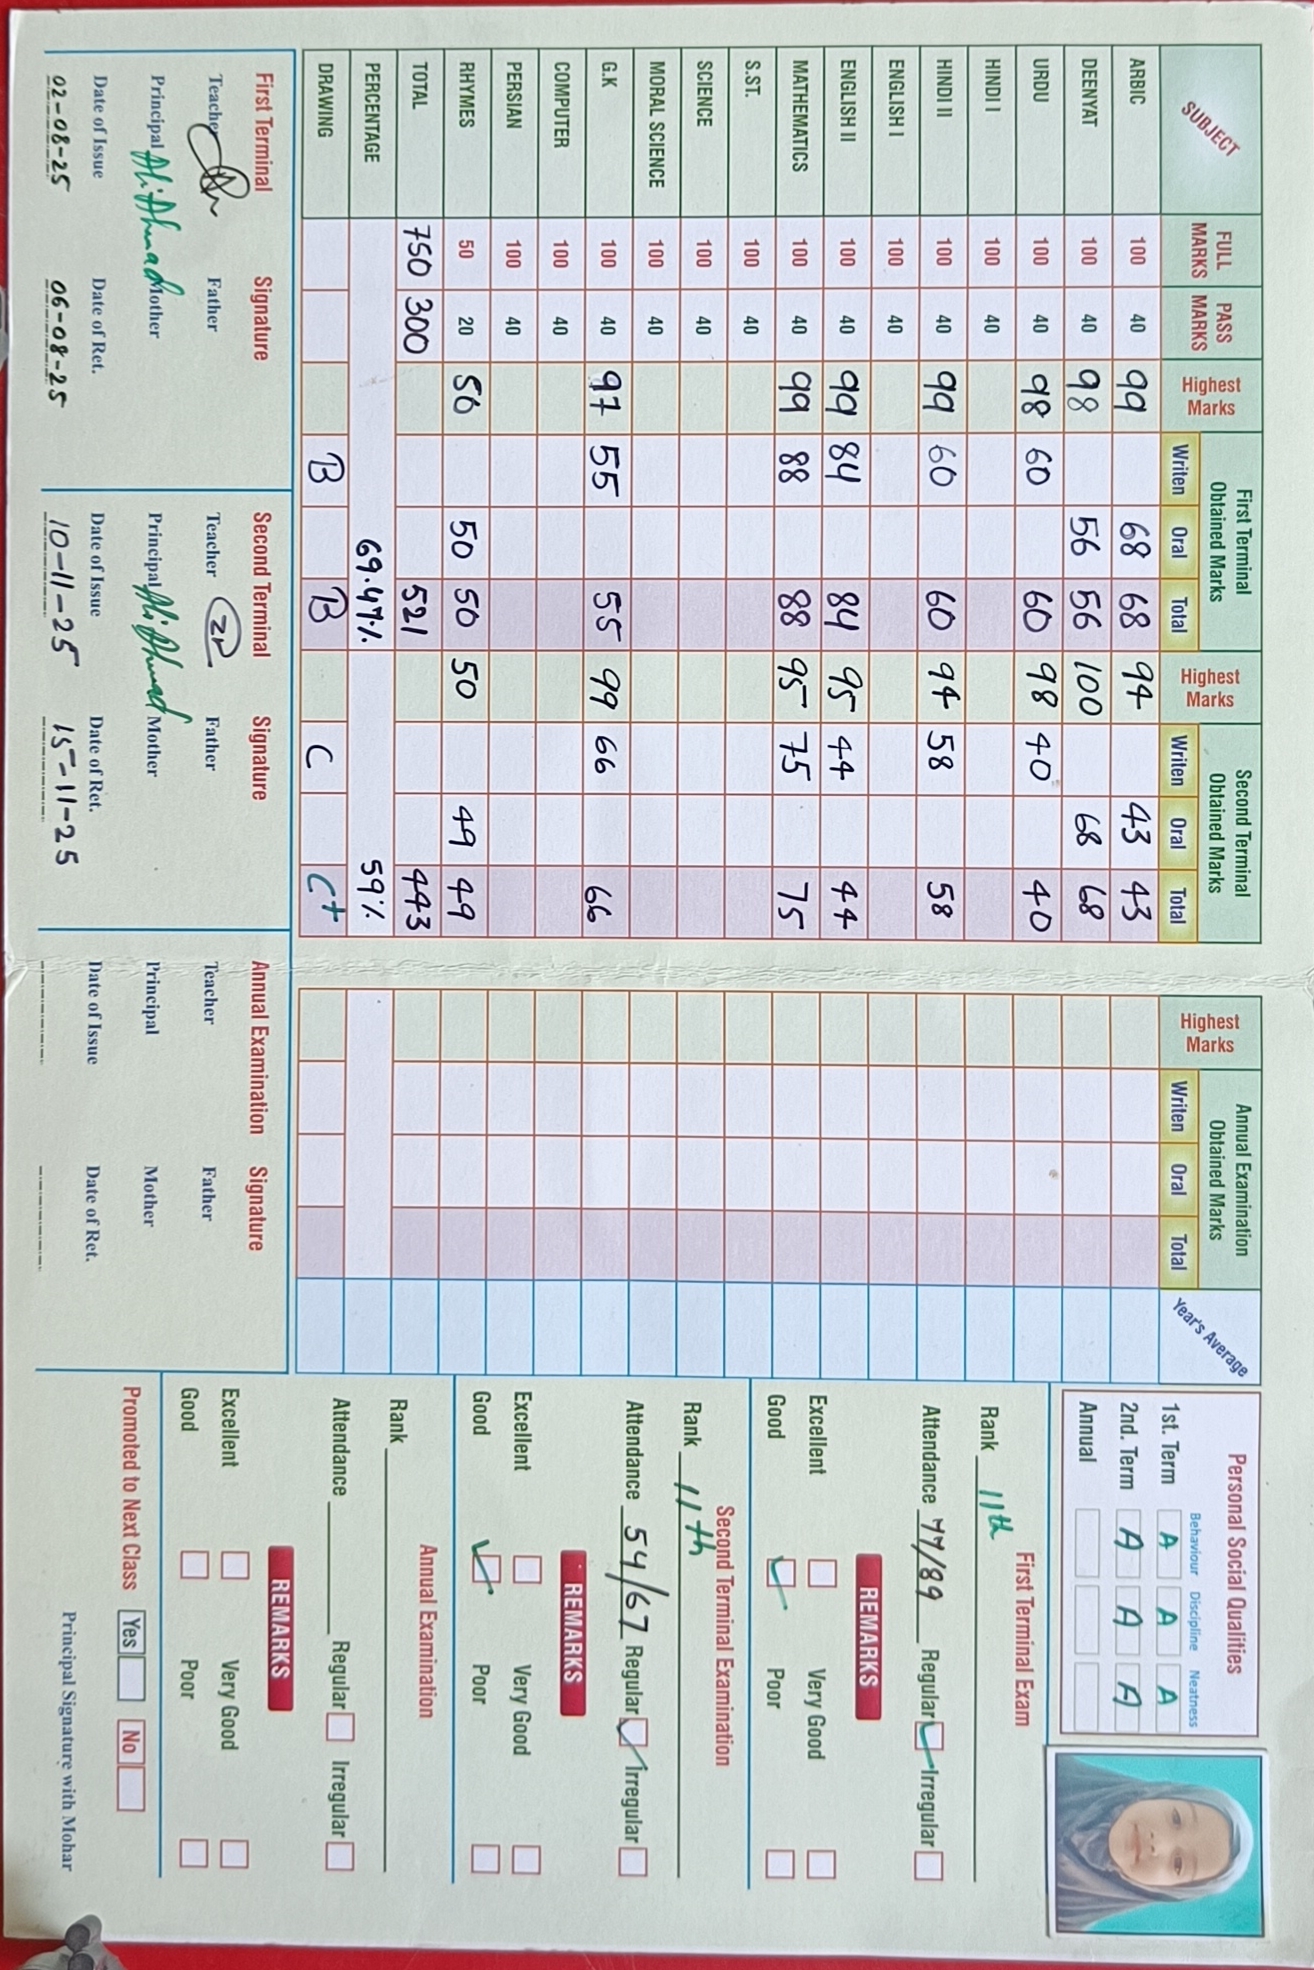 SUBJECT FULL MARKS PASS MARKS Highest Marks First Terminal Obtained Marks Writen Oral Total Highest Marks Second Terminal Obtained Marks Writen Oral Total Highest Marks Annual Examination Obtained Marks Writen Oral Total Year's Average
ARBIC 100 40 99 68 68 94 43 43
DEENYAT 100 40 98 56 56 100 68 68
URDU 100 40 98 60 60 98 40 40
HINDI I 100 40
HINDI II 100 40 99 60 60 94 58 58
ENGLISH I 100 40
ENGLISH II 100 40 99 84 84 95 44 44
MATHEMATICS 100 40 99 88 88 95 75 75
S.ST. 100 40
SCIENCE 100 40
MORAL SCIENCE 100 40
G.K 100 40 97 55 55 99 66 66
COMPUTER 100 40
PERSIAN 100 40
RHYMES 50 20 50 50 50 50 49 49
TOTAL 750 300 521 443
PERCENTAGE 69.47% 59%
DRAWING B B C C+
First Terminal Signature
Teacher Father
Principal Ali Ahmad Mother
Date of Issue Date of Ret.
02-08-25 06-08-25
Second Terminal Signature
Teacher Father
Principal Ali Ahmad Mother
Date of Issue Date of Ret.
10-11-25 15-11-25
Annual Examination Signature
Teacher Father
Principal Mother
Date of Issue Date of Ret.
Personal Social Qualities
Behaviour Discipline Neatness
1st. Term A A A
2nd. Term A A A
Annual
First Terminal Exam
Rank 11th
Attendance 77/89 Regular Irregular
REMARKS
Excellent Very Good
Good Poor
Second Terminal Examination
Rank 11th
Attendance 54/67 Regular Irregular
REMARKS
Excellent Very Good
Good Poor
Annual Examination
Rank
Attendance Regular Irregular
REMARKS
Excellent Very Good
Good Poor
Promoted to Next Class Yes No
Principal Signature with Mohar